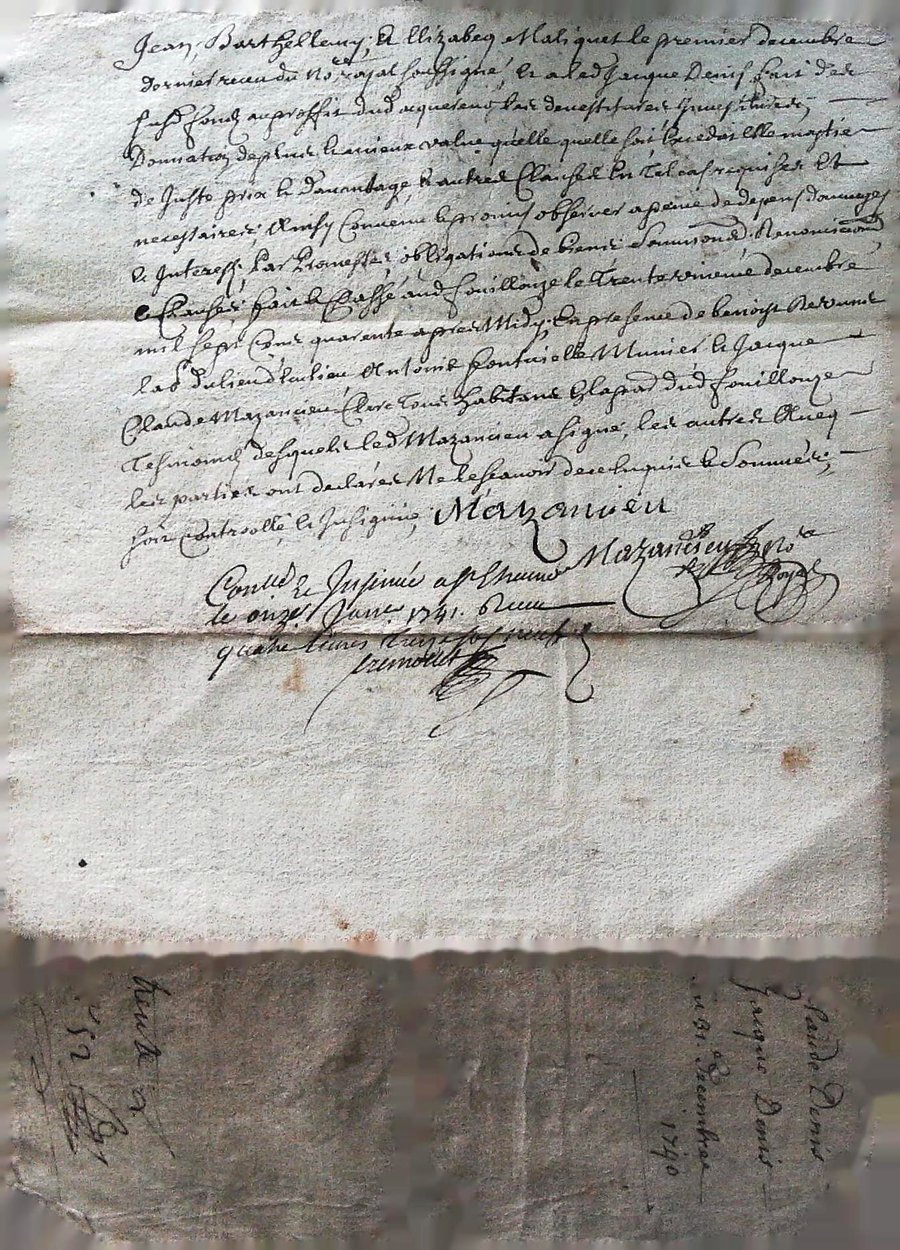 Jean, Barthellemy, & Elizabeq Maliquet le premier decembre
dernier receu du No.re royal soussigné, & a led Jacque Denis fait des
susd fondz au proffit dud acquereur les devestitures Investitures,
Donnation de plus & mieux value qu'elle quelle soit Excedat Elle moptie
de Juste prix & davantage, & autres Clauses En tel cas requises Et
necessaires, Ainsy Convenu & promis observer a peine de depens domages
& Interest, par promesses, obligations de biens Soumissions Renonciaons
& Clauses, fait & passé aud fouillouze le Trente unieme decembre
mil sept Cens quarente apres Midy, En presence de benoist
lab.r du lieu Antoine Munier & Jacque
Claude Mazancieu Clerc Tous habitans dud fouillouze
Tesmoinds desquels led Mazancieu a signé, les autres Avecq
les parties ont declarés Ne le scavoir de ce Enquis & Sommés,
soit Controollé, & Insignué, Mazancieu
Mazancieu No.re
Royal
Con.llé & Insinué a St Etienne
le onze Janv.r 1741. Receu
quatre livres treize sols neuf d
Claude Denis
Jacque Denis
du 31 Decembre
1740